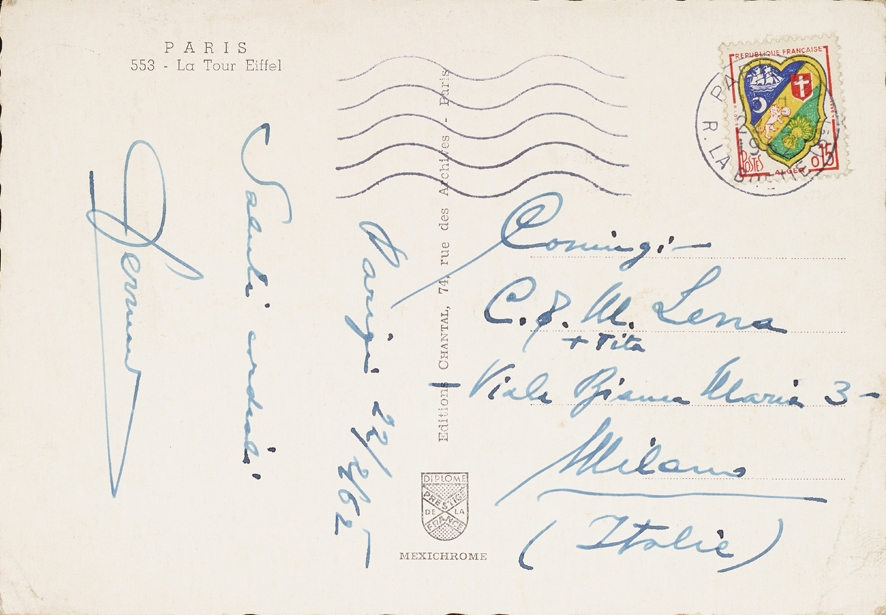 PARIS
553 - La Tour Eiffel
Saluti cordiali
Parigi 22/2/62
Editions CHANTAL, 74, rue des Archives - Paris
DIPLOME
PRESTIGE
DE LA
FRANCE
MEXICHROME
REPUBLIQUE FRANÇAISE
POSTES
0,15
ALGER
PARIS
R. LA
C. & M. Lena
+ Tita
Viale Bianca Maria 3 -
Milano
(Italie)